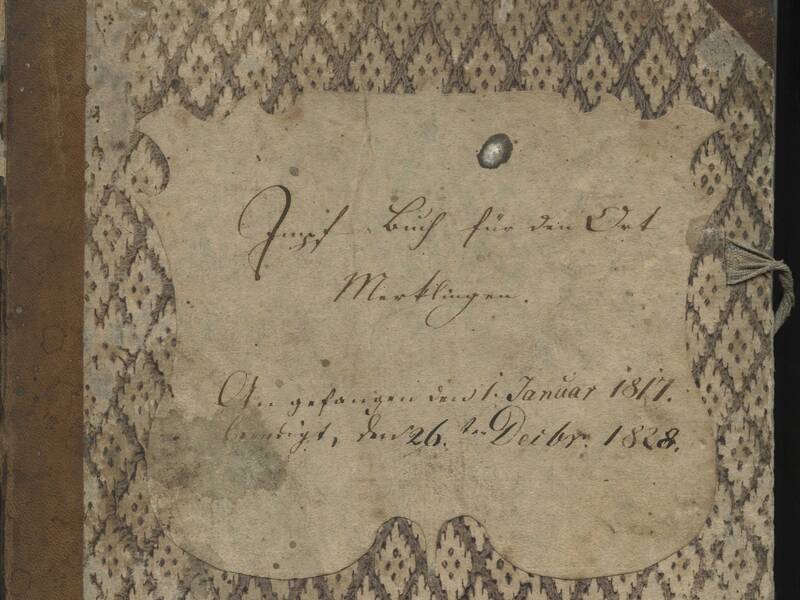 Impf Buch für den Ort
Merklingen.
Angefangen den 1. Januar 1817.
beendigt, den 26.ten Decbr. 1828.